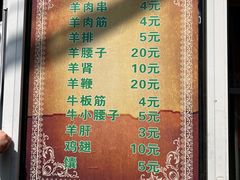 羊肉串 4元
羊肉筋 4元
羊排 5元
羊腰子 20元
羊肾 10元
羊鞭 20元
牛板筋 4元
牛小腰子 5元
羊肝 3元
鸡翅 10元
馕 5元